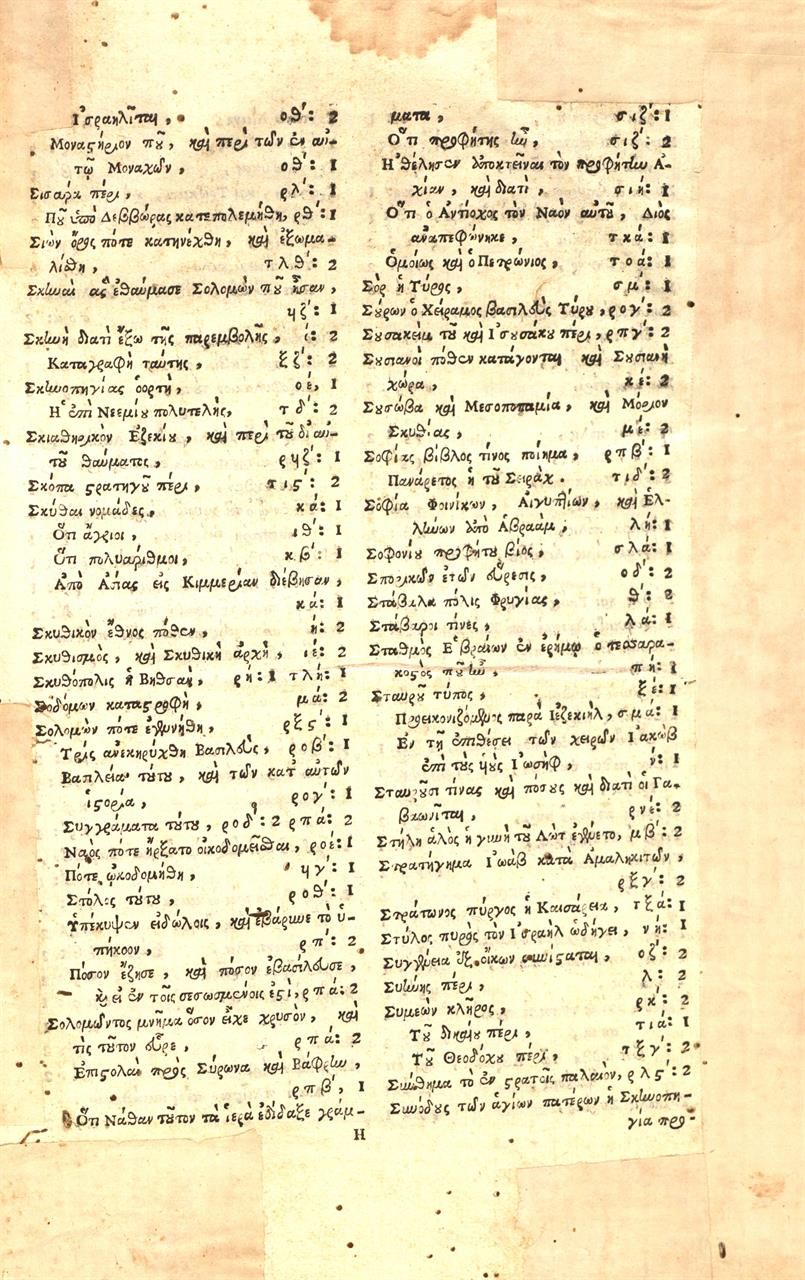 Ἰσραηλῖται, οθ΄: 2
Μοναςήριον ποῦ, καὶ περὶ τῶν ἐν αὐ-
τῷ Μοναχῶν, οθ΄: 1
Σισάρα πέρι, ρλ΄: 1
Ποῦ ὑπὸ Δεββώρας κατεπολεμήθη, ρθ΄: 1
Σιὼν ὄρος πότε κατηνέχθη, καὶ ἐξωμα-
λίθη, τλθ΄: 2
Σκηναὶ ἃς ἐθαύμασε Σολομὼν ποῦ ἦσαν,
ϥζ΄: 1
Σκηνὴ διατὶ ἔξω τῆς παρεμβολῆς, ί: 2
Καταγραφὴ ταύτης, ξζ΄: 2
Σκηνοπηγίας ἑορτὴ, οέ, 1
Ἡ ἐπὶ Νεεμίου πολυτελής, τδ΄: 2
Σκιαθηρικὸν Ἐζεκίου, καὶ περὶ τοῦ δι' αὐ-
τοῦ θαύματος, ρϥζ΄: 1
Σκόπα ςρατηγοῦ πέρι, τις΄: 2
Σκύθαι νομάδες, κά: 1
Ὅτι ἄγριοι, ιθ΄: 1
Ὅτι πολυάριθμοι, κβ΄: 1
Ἀπὸ Ἀσίας εἰς Κιμμερίαν διέβησαν,
κά: 1
Σκυθικὸν ἔθνος πόθεν, ή: 2
Σκυθισμὸς, καὶ Σκυθικὴ ἀρχὴ, ιέ: 2
Σκυθόπολις ἡ Βηθσαὴ, ρή: 1 τλή: 1
Σοδόμων καταςροφὴ, μά: 2
Σολομὼν πότε ἐγεννήθη, ρξς΄: 1
Τρὶς ἀνεκηρύχθη Βασιλεὺς, ροβ΄: 1
Βασιλεία τούτου, καὶ τῶν κατ' αὐτὸν
ἱςορία, ρογ΄: 1
Συγγράματα τούτου, ροδ΄: 2 ρπά: 2
Ναὸς πότε ἤρξατο οἰκοδομεῖσθαι, ροέ: 1
Πότε ᾠκοδομήθη, ϥγ΄: 1
Στόλος τούτου, ροθ΄: 1
Ὑπέκυψεν εἰδώλοις, καὶ ἐβάρυνε τὸ ὑ-
πήκοον, ρπ΄: 2
Πόσον ἔζησε, καὶ πόσον ἐβασίλευσε,
καὶ εἰ ἐν τοῖς σεσωσμένοις ἐςὶ, ρπά: 2
Σολομῶντος μνῆμα ὅσον εἶχε χρυσὸν, καὶ
τὶς τοῦτον εὗρε, ρπά: 2
Ἐπιςολαὶ πρὸς Σύρωνα καὶ Βάφρην,
ρπβ΄, 1
Ὅτι Νάθαν τοῦτον τὰ ἱερὰ ἐδίδαξε γράμ-
Η
ματα, σιζ΄: 1
Ὅτι προφήτης ἦν, σιζ΄: 2
Ἠθέλησεν ἀποκτεῖναι τὸν προφήτην Ἀ-
χίαν, καὶ διατὶ, σιή: 1
Ὅτι ὁ Ἀντίοχος τὸν Ναὸν αὐτοῦ, Διὸς
ἀναπεφώνηκε, τκά: 1
Ὁμοίως καὶ ὁ Πετρώνιος, τοά: 1
Σὸρ ἡ Τύρος, σμ΄: 1
Σύρων ὁ Χείραμος βασιλεὺς Τύρου, ρογ΄: 2
Συσακεὶμ τοῦ καὶ Ἰσουσάκου πέρι, ρπγ΄: 2
Συσιανοὶ πόθεν κατάγονται καὶ Συσιανὴ
χώρα, κέ: 2
Σουσώβα καὶ Μεσοποταμία, καὶ Μόριον
Σκυθίας, μέ: 2
Σοφίας βίβλος τίνος ποίημα, ρπβ΄: 1
Πανάρετος ἡ τοῦ Σειρὰχ. τιδ΄: 2
Σοφία Φοινίκων, Αἰγυπτίων, καὶ Ἑλ-
λήνων ἀπὸ Ἀβραὰμ, λή: 1
Σοφονίου προφήτου βίος, σλά: 1
Σποράδων ἐτῶν εὕρεσις, οδ΄: 2
Στάβιλα πόλις Φρυγίας, θ΄: 2
Στάβαροι τίνες, λά: 1
Σταθμὸς Ἑβραίων ἐν ἐρήμῳ ὁ τεσσαρα-
κοςὸς ποῦ ἦν, πή: 1
Σταυροῦ τύπος, ξέ: 1
Προεικονιζόμενος παρὰ Ἰεζεκιὴλ, σμά: 1
Ἐν τῇ ἐπιθέσει τῶν χειρῶν Ἰακὼβ
ἐπὶ τοὺς υἱοὺς Ἰωσὴφ, ν΄: 1
Σταυροῦσι τίνας καὶ πόσους καὶ διατὶ οἱ Γα-
βαωνῖται, ρνέ: 2
Στήλη ἁλὸς ἡ γυνὴ τοῦ Λὼτ ἐγένετο, μβ΄: 2
Στρατήγημα Ἰωὰβ κατὰ Ἀμαληκιτῶν,
ρξγ΄: 2
Στράτωνος πύργος ἡ Καισάρεια, τξά: 1
Στύλος πυρὸς τὸν Ἰσραὴλ ὡδήγει, νή: 1
Συγγένεια ἐξ οἵκων συνίςαται, οζ΄: 2
Συήνης πέρι, λ΄: 2
Συμεὼν κλῆρος, ρκ΄: 2
Τοῦ δικαίου πέρι, τιά: 1
Τοῦ Θεοδόχου πέρι, τξγ΄: 2
Σύνθημα τὸ ἐν ςρατοῖς παλαιὸν, ρλς΄: 2
Συνόδους τῶν ἁγίων πατέρων ἡ Σκηνοπη-
γία προ-